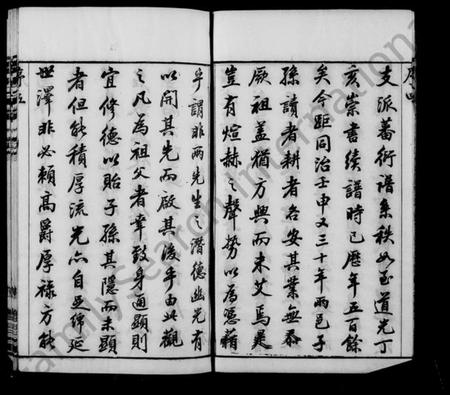 序四
支派蕃衍譜系秩如至道光丁
亥崇書續譜時已歷年五百餘
矣今距同治壬申又三十年兩邑子
孫讀者耕者各安其業無忝
厥祖蓋猶方興而未艾焉是
豈有煊赫之聲勢以為憑藉
乎謂非兩先生之潛德幽光有
以開其先而啟其後乎由此觀
之凡為祖父者幸鼓身通顯則
宜修德以貽子孫其隱而未顯
者但能積厚流光亦自絲延
世澤非必賴高爵厚祿方能
序五
FamilySearch International